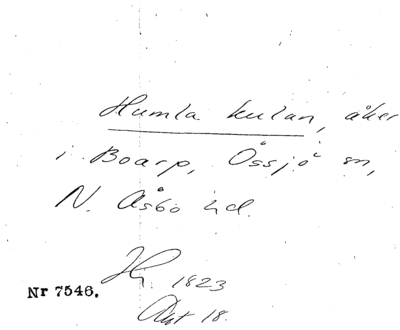 Humla kulan, åker
i Boarp, Össjö sn,
N. Åsbo hd.
Hj. 1823
Akt 18.
Nr 7546.